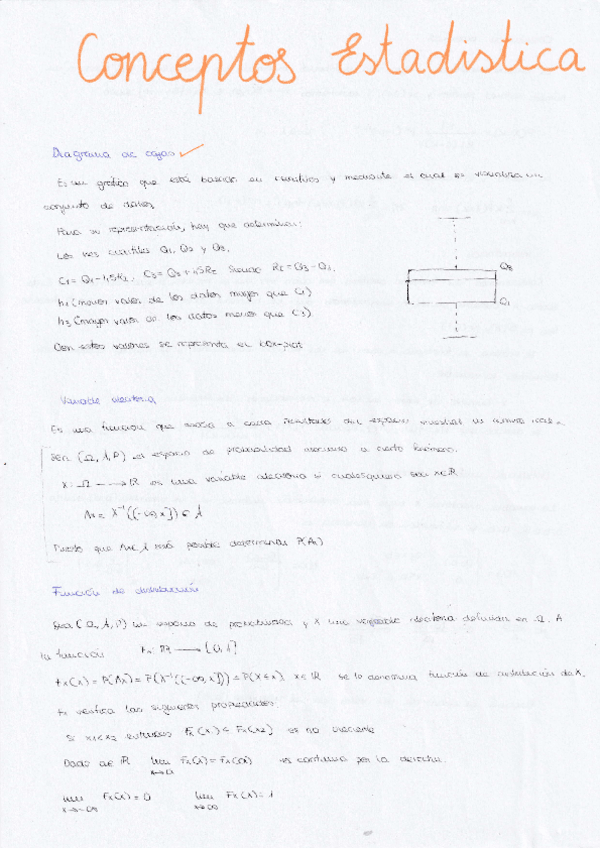 Conceptos Estadistica
Diagrama de cajas ✓
Es un gráfico que está basado en cuartiles y mediante el cual se visualiza un
conjunto de datos.
Para su representación, hay que determinar:
Los tres cuartiles Q₁, Q₂ y Q₃.
C₁ = Q₁ - 1,5R₂, C₃ = Q₃ + 1,5R₂ siendo R₂ = Q₃ - Q₁.
h₁ (menor valor de los datos mayor que C₁)
h₃ (mayor valor de los datos menor que C₃)
Con estos valores se representa el box-plot
Q₃
Q₁
Variable aleatoria
Es una función que asocia a cada resultado del espacio muestral un número real.
Sea (Ω, A, P) el espacio de probabilidad asociado a cierto fenómeno.
X: Ω → ℝ es una variable aleatoria si cualesquiera sea x∈ℝ
Aₓ = X⁻¹((-∞, x]) ∈ A
Puesto que Aₓ∈A será posible determinar P(Aₓ)
Función de distribución
Sea (Ω, A, P) un espacio de probabilidad y X una variable aleatoria definida en Ω. A
la función Fₓ: ℝ → [0,1]
Fₓ(x) = P(Aₓ) = P(X⁻¹((-∞, x])) = P(X≤x), x∈ℝ se le denomina función de distribución de X.
Se verifica las siguientes propiedades:
Si x₁<x₂ entonces Fₓ(x₁) ≤ Fₓ(x₂) es no creciente
Dado a∈ℝ lim Fₓ(x) = Fₓ(a) es continua por la derecha.
lim Fₓ(x) = 0 lim Fₓ(x) = 1
x→-∞ x→∞